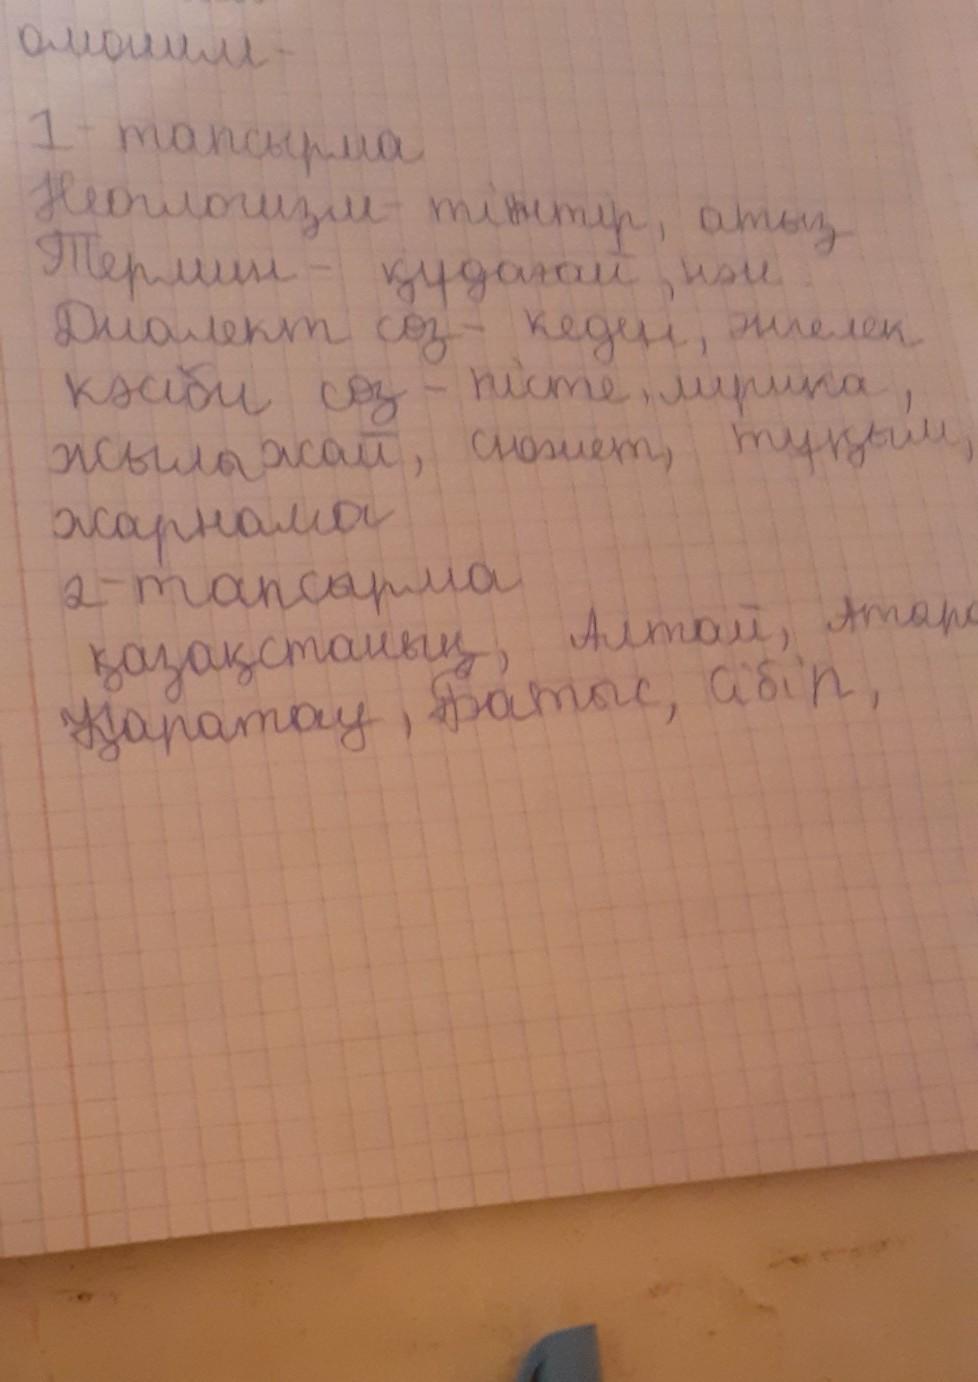 омоним-
1- тапсырма
Неологизм- тінтір, атыз
Термин - құдағай, нән
Диалект сөз- кеден, жиелек
кәсіби сөз - пісте, лирика,
жылыжай, сюжет, тұқым,
жарнама
2-тапсырма
қазақстаның, Алтай,
Қаратау, батыс,